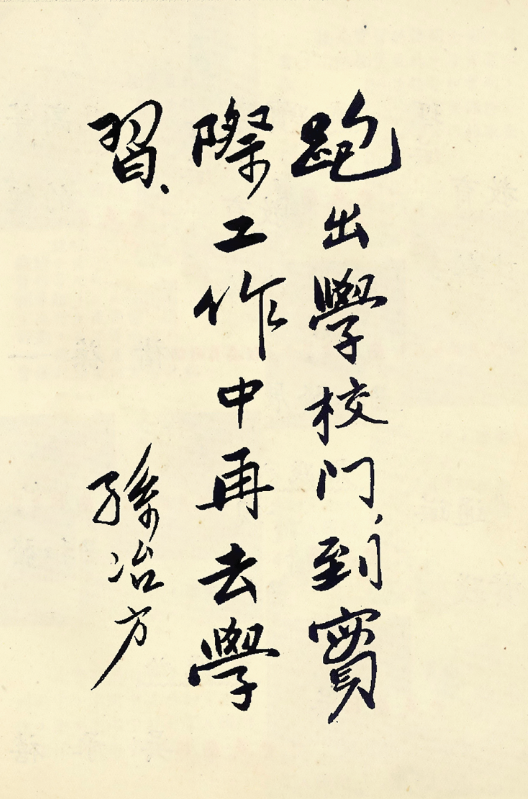 跑出學校门，到實
際工作中再去學
習、
孫冶方